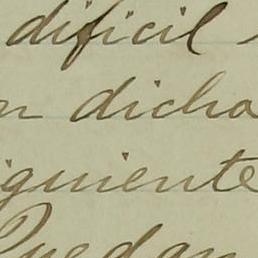 dificil
n dicho
iguiente
Quedan